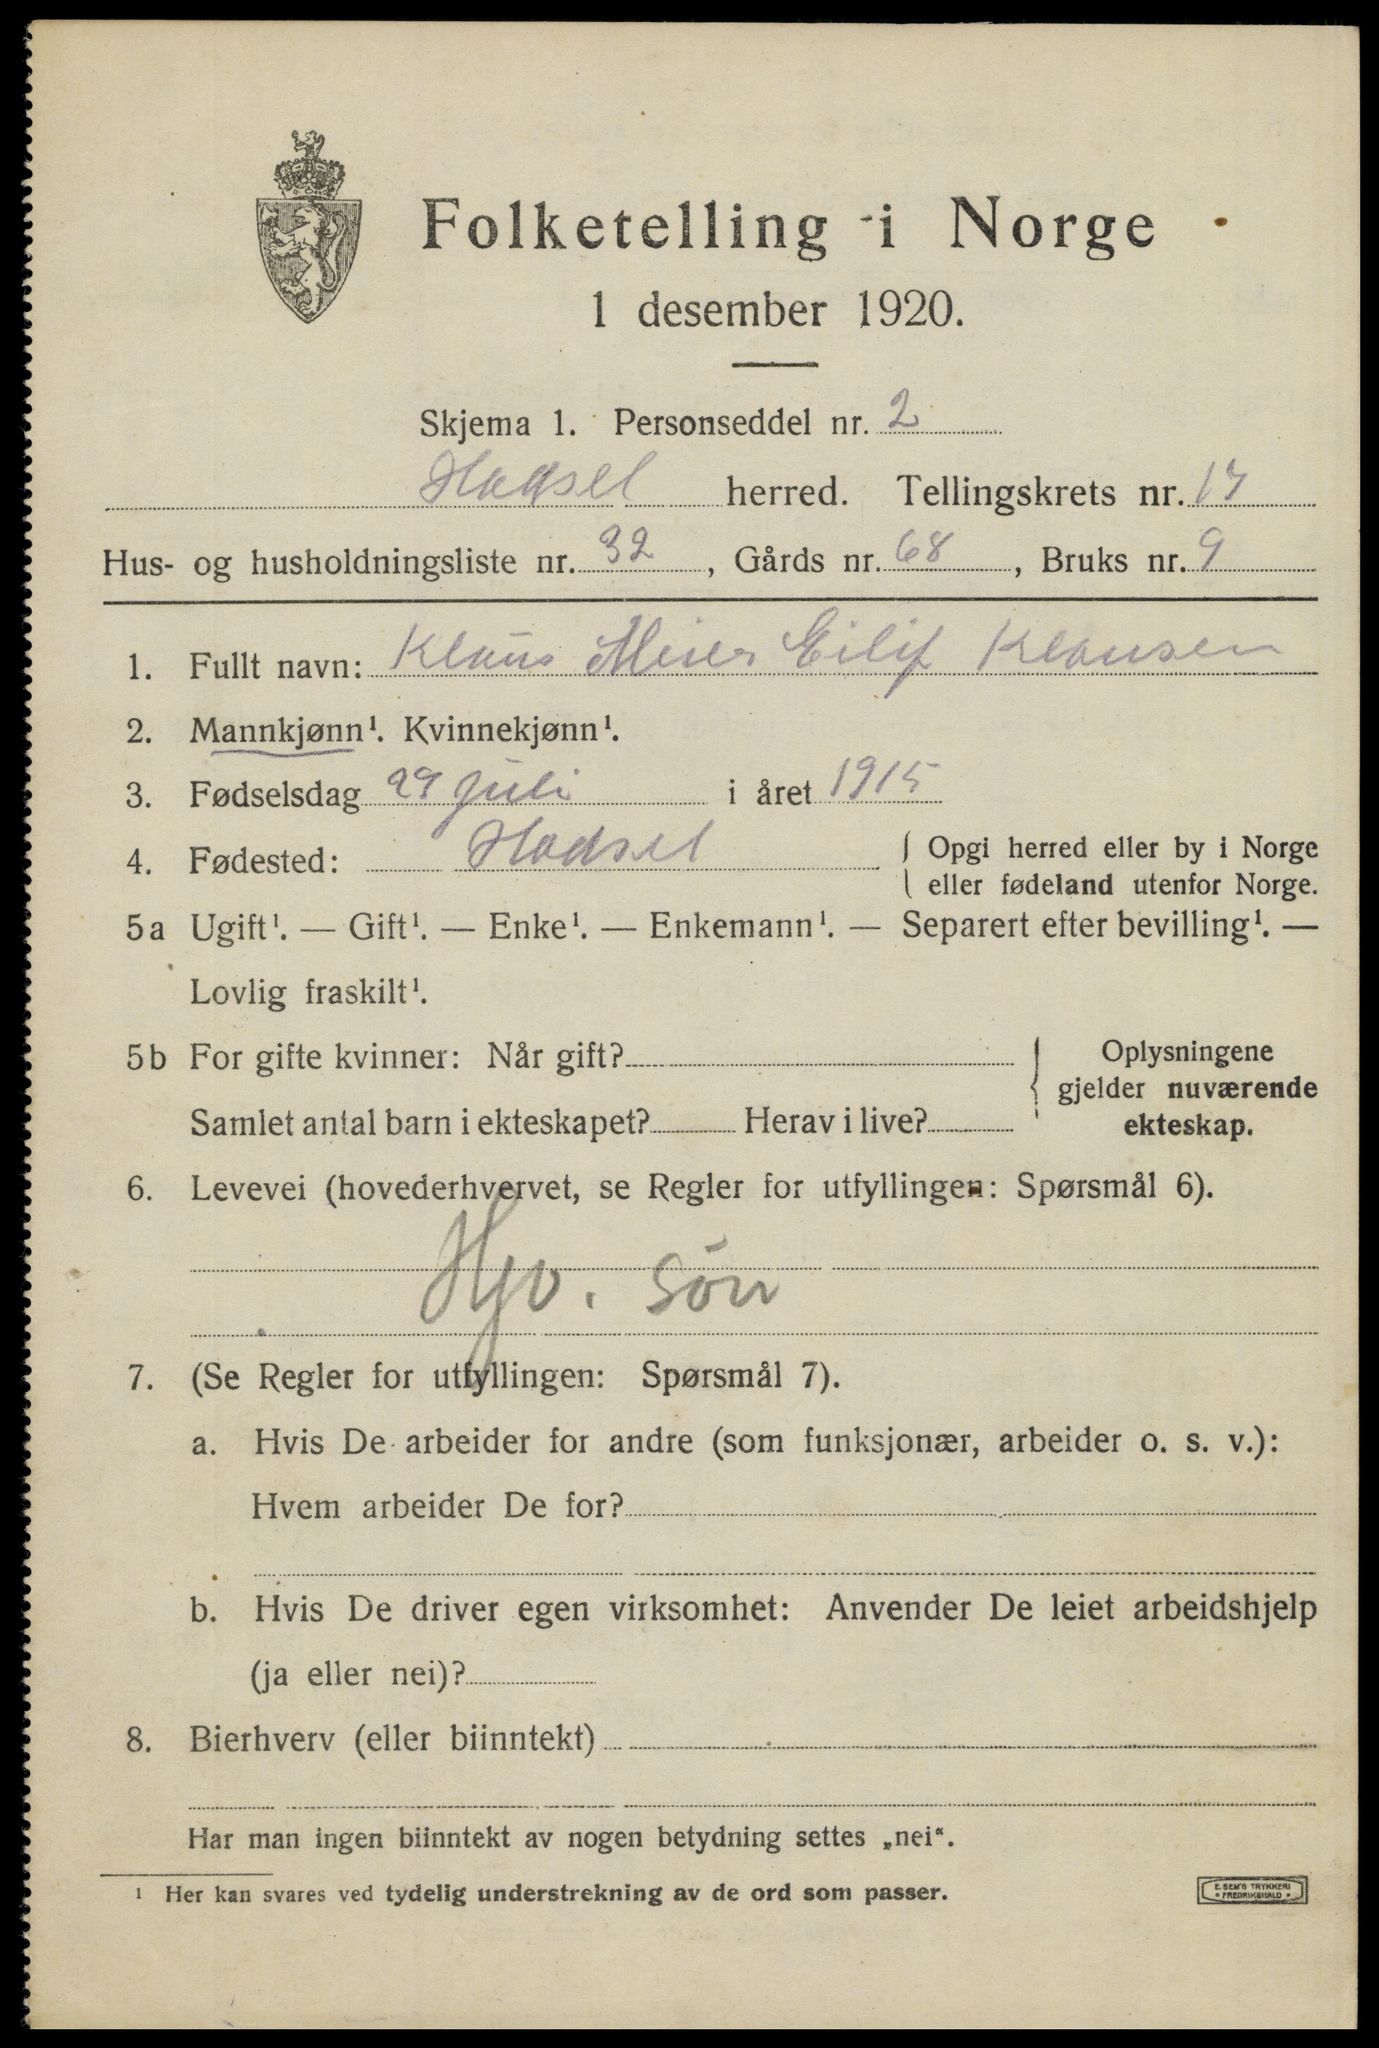 Folketelling i Norge
1 desember 1920.
Skjema 1. Personseddel nr. 2
Hadsel herred. Tellingskrets nr. 17
Hus- og husholdningsliste nr. 32, Gårds nr. 68, Bruks nr. 9
1. Fullt navn: Klaus Meier Eilif Klausen
2. Mannkjønn¹. Kvinnekjønn¹.
3. Fødselsdag 29 juli i året 1915
4. Fødested: Hadsel { Opgi herred eller by i Norge
eller fødeland utenfor Norge.
5a Ugift¹. — Gift¹. — Enke¹. — Enkemann¹. — Separert efter bevilling¹. —
Lovlig fraskilt¹.
5b For gifte kvinner: Når gift? { Oplysningene
gjelder nuværende
Samlet antal barn i ekteskapet? Herav i live? ekteskap.
6. Levevei (hovederhvervet, se Regler for utfyllingen: Spørsmål 6).
Hjv. søn
7. (Se Regler for utfyllingen: Spørsmål 7).
a. Hvis De arbeider for andre (som funksjonær, arbeider o. s. v.):
Hvem arbeider De for?
b. Hvis De driver egen virksomhet: Anvender De leiet arbeidshjelp
(ja eller nei)?
8. Bierhverv (eller biinntekt)
Har man ingen biinntekt av nogen betydning settes „nei“.
¹ Her kan svares ved tydelig understrekning av de ord som passer.
E. SEM'S TRYKKERI
• FREDRIKSHALD •